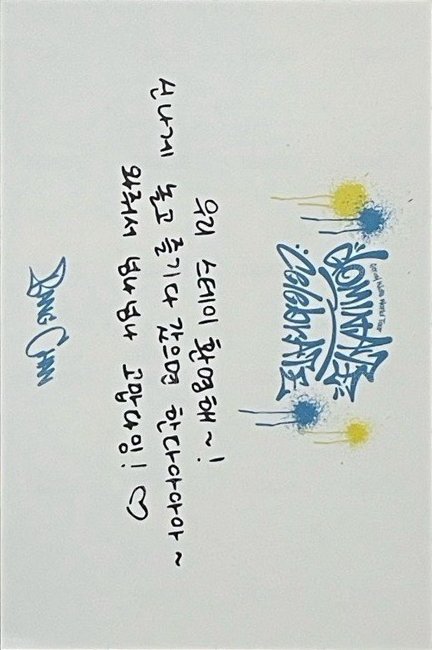 우리 스테이 환영해~!
신나게 놀고 즐기다 갔으면 한다아아아~
와줘서 넘나넘나 고맙다잉! ♡
BANG CHAN